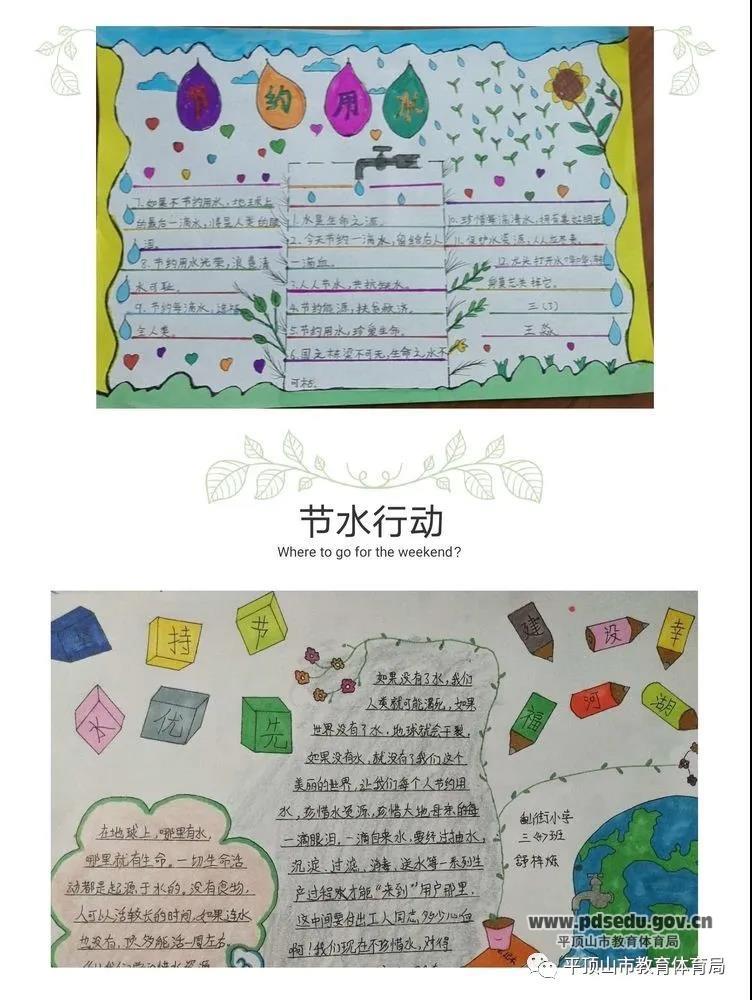 节约用水
7.如果不节约用水,地球上
的最后一滴水,将是人类的眼
泪。
8.节约用水光荣,浪费清
水可耻。
9.节约每滴水,造福
全人类。
1.水是生命之源。
2.今天节约一滴水,留给后人
一滴血。
3.人人节水,共抗缺水。
4.节约能源,扶危救济。
5.节约用水,珍爱生命。
6.国之栋梁不可无,生命之水不
可枯。
10.珍惜每滴清水,拥有美好明天
11.保护水资源,人人应尽责。
三(3)
王淼
节水行动
Where to go for the weekend?
坚持节
水优先
建设幸
福河湖
在地球上,哪里有水,
哪里就有生命。一切生命活
动都是起源于水的。没有食物,
人可以活较长的时间,如果连水
也没有,顶多能活一周左右。
如果没有了水,我们
人类就可能渴死,如果
世界没有了水,地球就会干裂,
如果没有水,就没有了我们这个
美丽的世界,让我们每个人节约用
水,珍惜水资源,珍惜大地母亲的每
一滴眼泪。一滴自来水,要经过抽水,
沉淀、过滤、消毒、送水等一系列生
产过程水才能“来到”用户那里.
这中间要付出工人同志多少心血
啊!我们现在不珍惜水,对得
街小学
三(4)班
舒梓烁
www.pdsedu.gov.cn
平顶山市教育体育局
平顶山市教育体育局